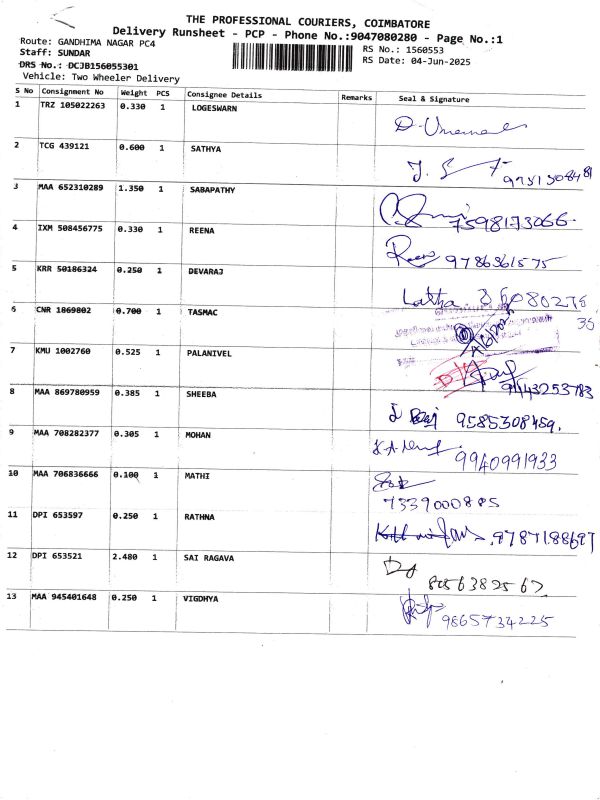 THE PROFESSIONAL COURIERS, COIMBATORE
Delivery Runsheet - PCP - Phone No.:9047080280 - Page No.:1
Route: GANDHIMA NAGAR PC4 RS No.: 1560553
Staff: SUNDAR RS Date: 04-Jun-2025
DRS No.: DCJB156055301
Vehicle: Two Wheeler Delivery
S No Consignment No Weight PCS Consignee Details Remarks Seal & Signature
1 TRZ 105022263 0.330 1 LOGESWARN
2 TCG 439121 0.600 1 SATHYA
3 MAA 652310289 1.350 1 SABAPATHY
7598173066.
4 IXM 508456775 0.330 1 REENA
Reena 9786361575
5 KRR 50186324 0.250 1 DEVARAJ
Latha
6 CNR 1869802 0.700 1 TASMAC
35
7 KMU 1002760 0.525 1 PALANIVEL
9443253783
8 MAA 869780959 0.385 1 SHEEBA
9585308489.
9 MAA 708282377 0.305 1 MOHAN
9940991933
10 MAA 706836666 0.100 1 MATHI
7339000885
11 DPI 653597 0.250 1 RATHNA
9787188697
12 DPI 653521 2.480 1 SAI RAGAVA
8056382562
13 MAA 945401648 0.250 1 VIGDHYA
9865734225